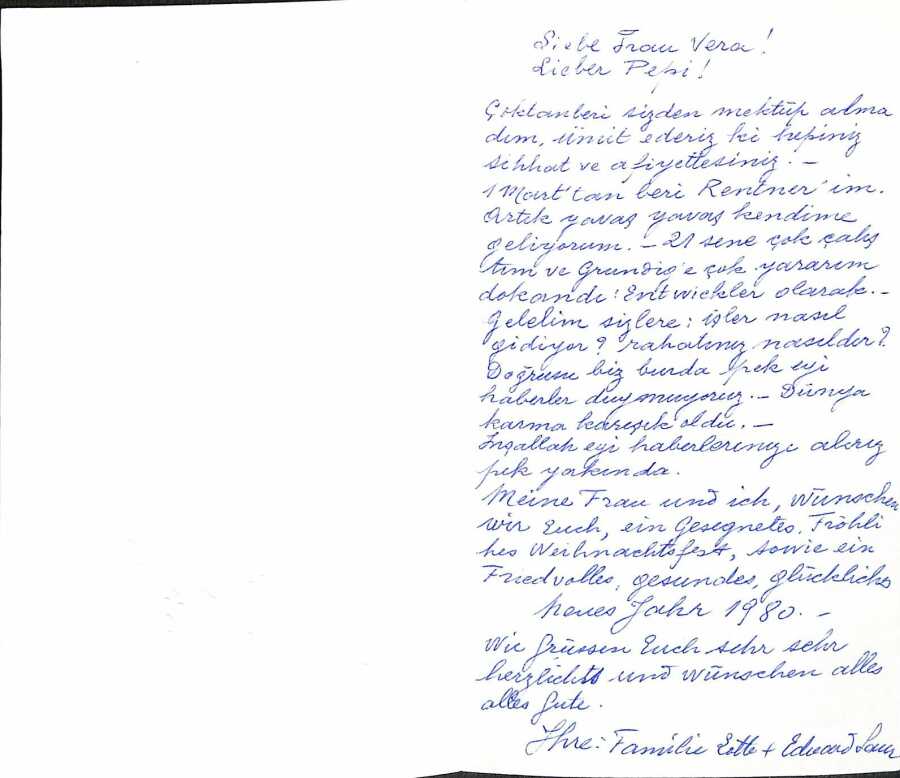 Liebe Frau Vera!
Lieber Pepi!
Çoktanberi sizden mektup alma
dım, ümit ederiz ki hepiniz
sihhat ve afiyettesiniz. —
1 Mart'tan beri Rentner'im.
Artık yavaş yavaş kendime
geliyorum. — 21 sene çok çalış
tım ve Grundig'e çok yararım
dokandı: Entwickler olarak. —
Gelelim sizlere: işler nasıl
gidiyor? rahatınız nasıldır?
Doğrusu biz burda pek eyi
haberler duymuyoruz. — Dünya
karma karışık oldu. —
İnşallah eyi haberlerinizi alırız
pek yakında.
Meine Frau und ich, wünschen
wir Euch, ein Gesegnetes, Fröhli
hes Weihnachtsfest, sowie ein
Friedvolles, gesundes, glückliches
neues Jahr 1980. —
Wir Grüssen Euch sehr sehr
herzlichts und wünschen alles
alles Gute.
Ihre: Familie + Eduard